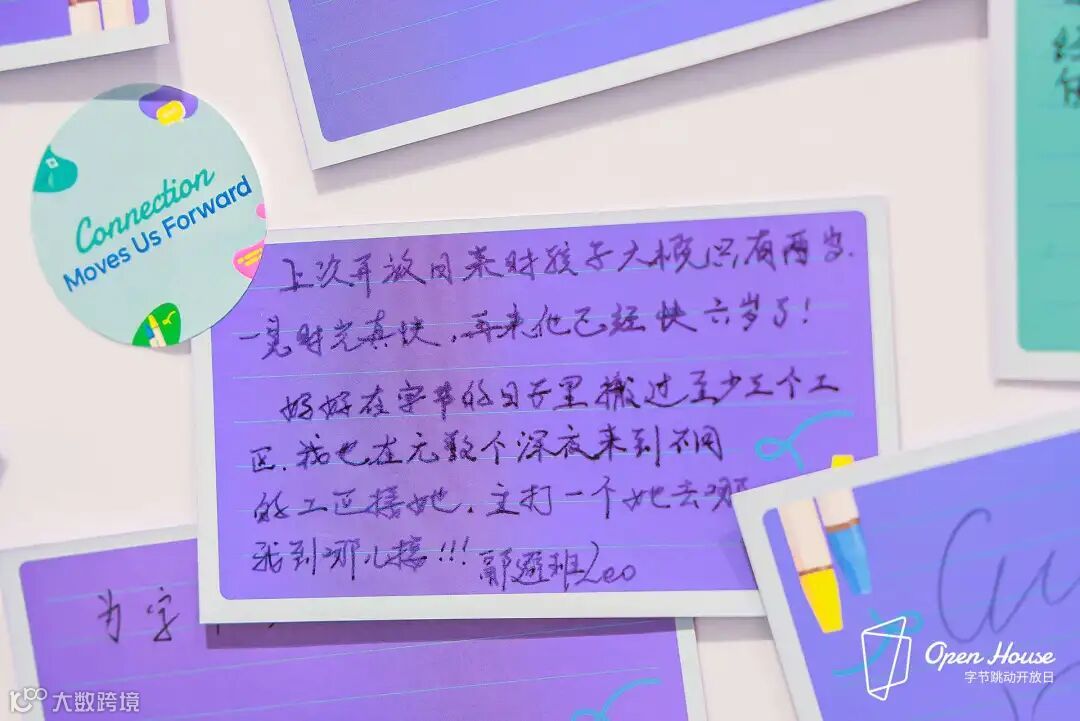 Connection
Moves Us Forward
上次开放日来时孩子大概只有两岁.
一晃时光真快,再来他已经快六岁了!
好好在字节的日子里搬过至少三个工
区,我也在无数个深夜来到不同
的工区接她,主打一个她去哪
我到哪儿接!!! Leo
为字
Open House
字节跳动开放日
大数跨境